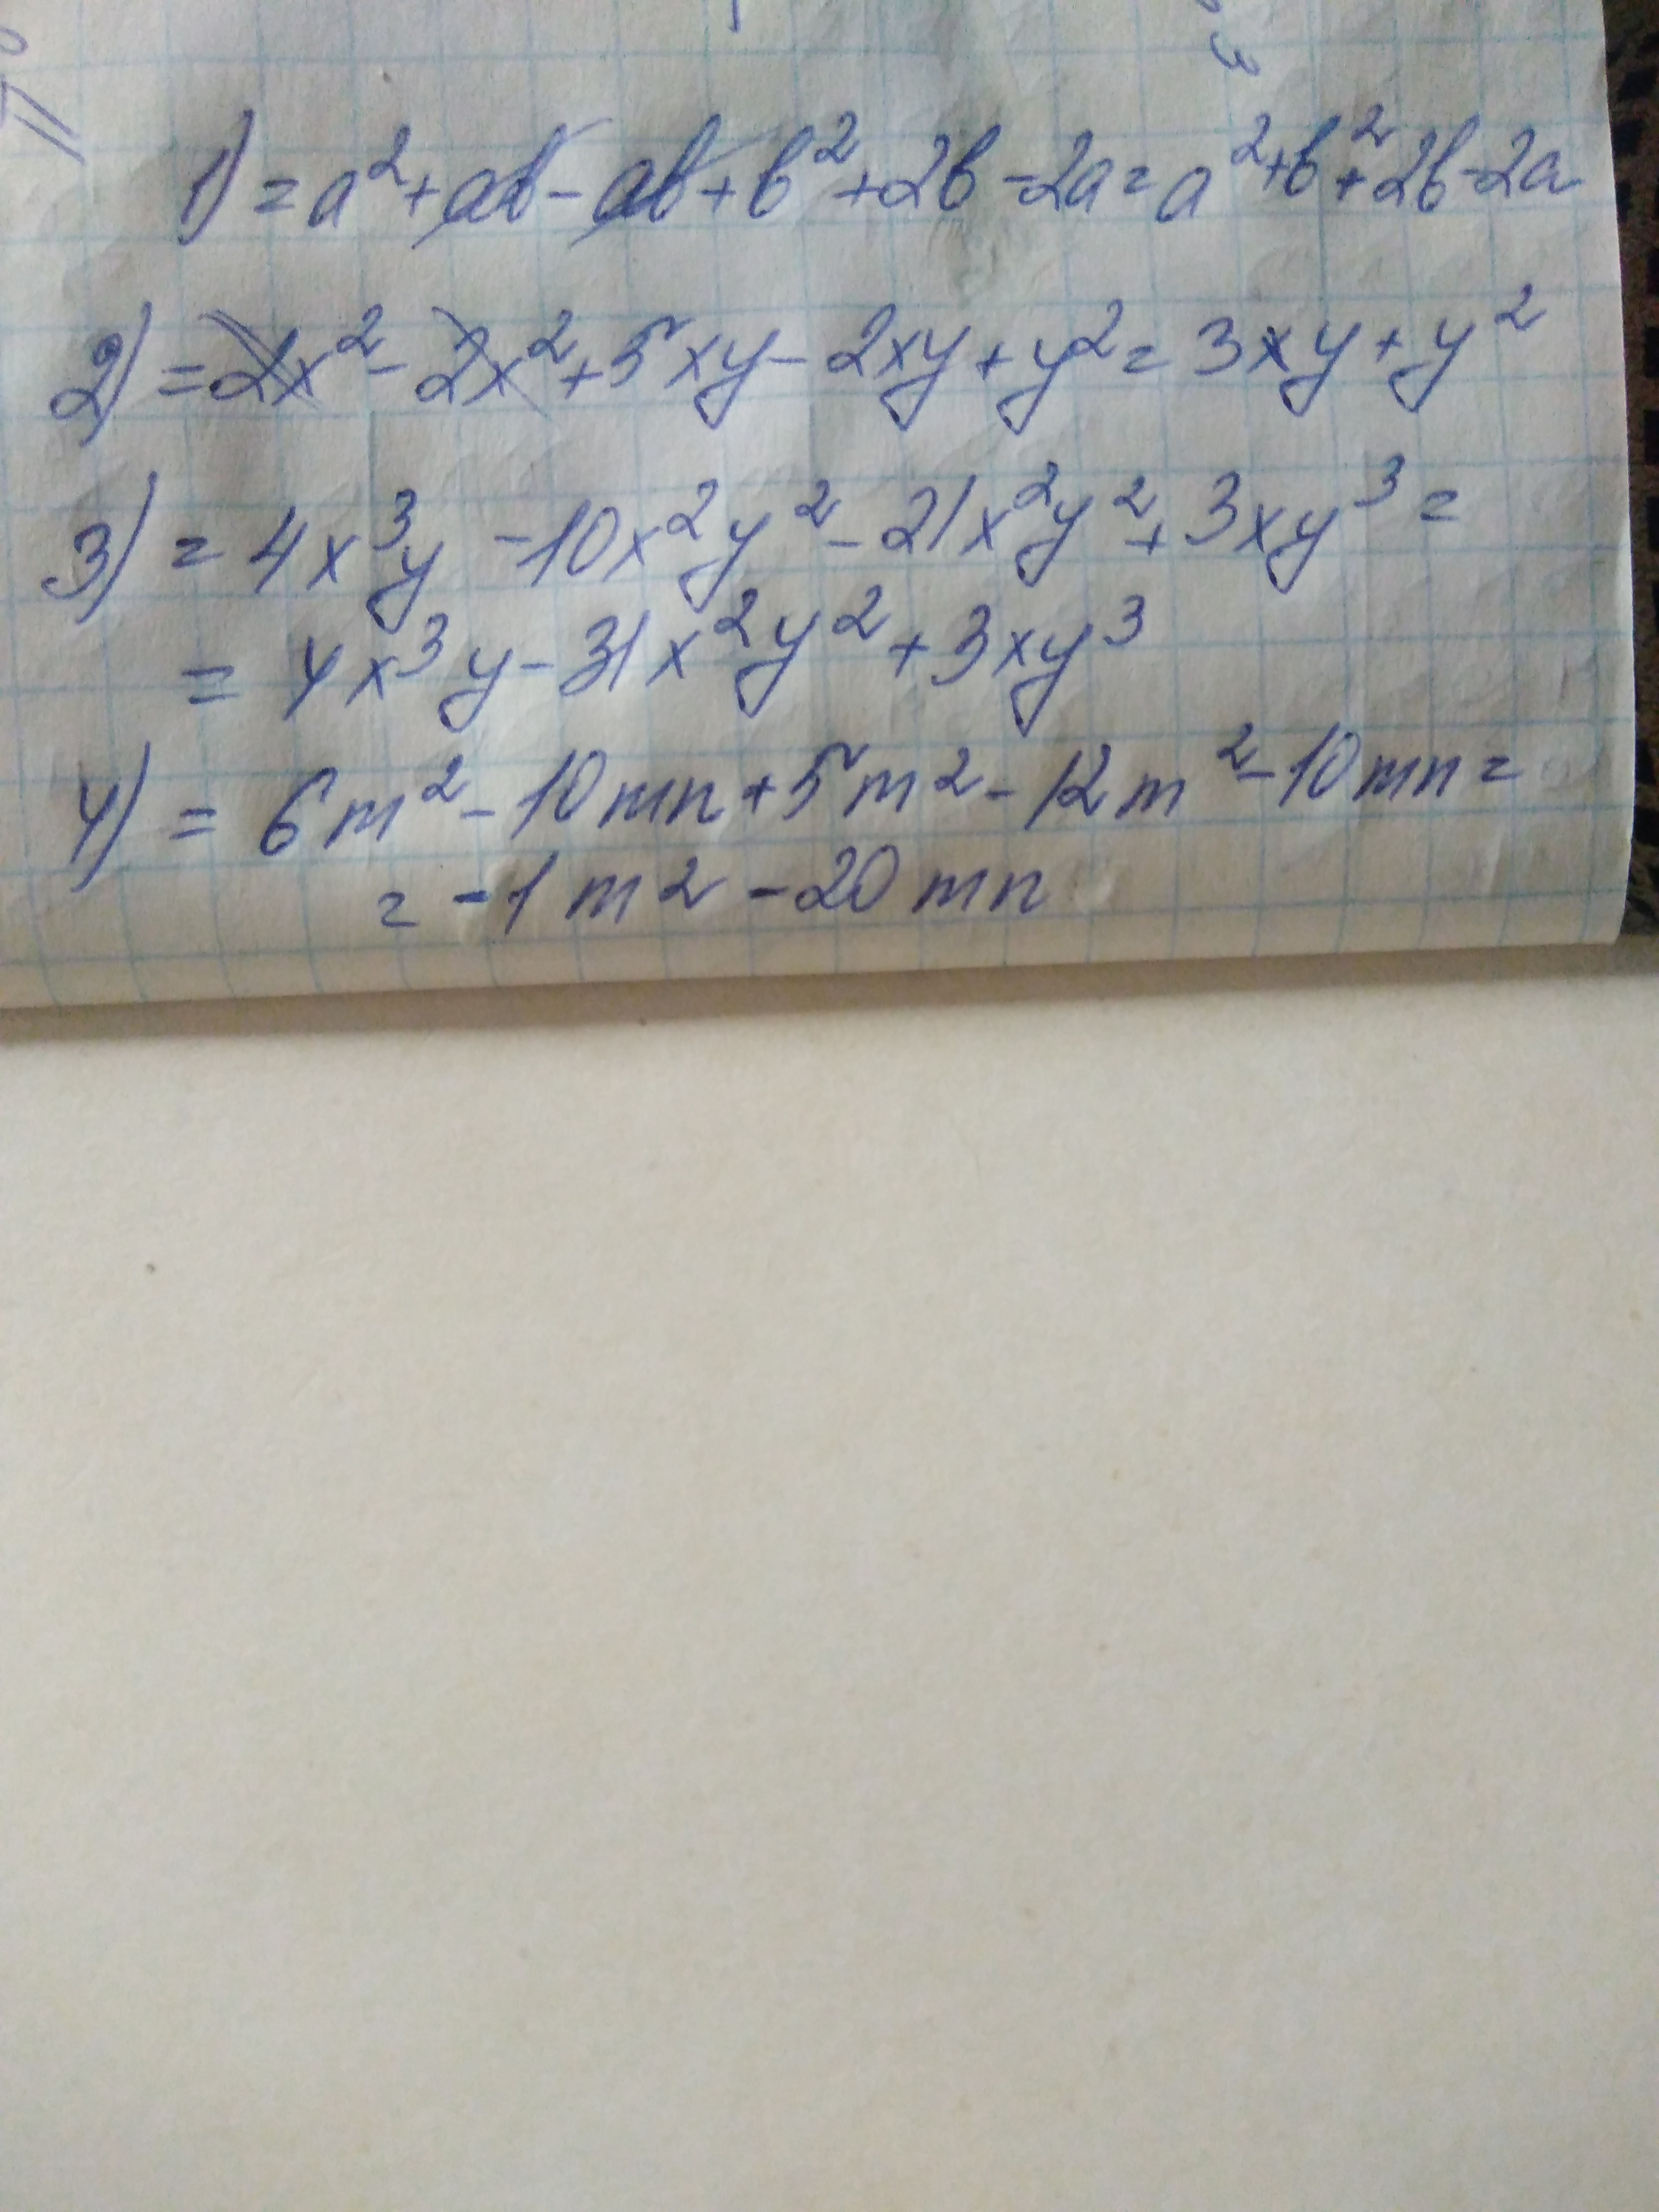 1) = a² + ab - ab + b² + 2b - 2a = a² + b² + 2b - 2a
2) = 2x² - 2x² + 5xy - 2xy + y² = 3xy + y²
3) = 4x³y - 10x²y² - 21x²y² + 3xy³ =
= 4x³y - 31x²y² + 3xy³
4) = 6m² - 10mn + 5m² - 12m² - 10mn =
= -1m² - 20mn